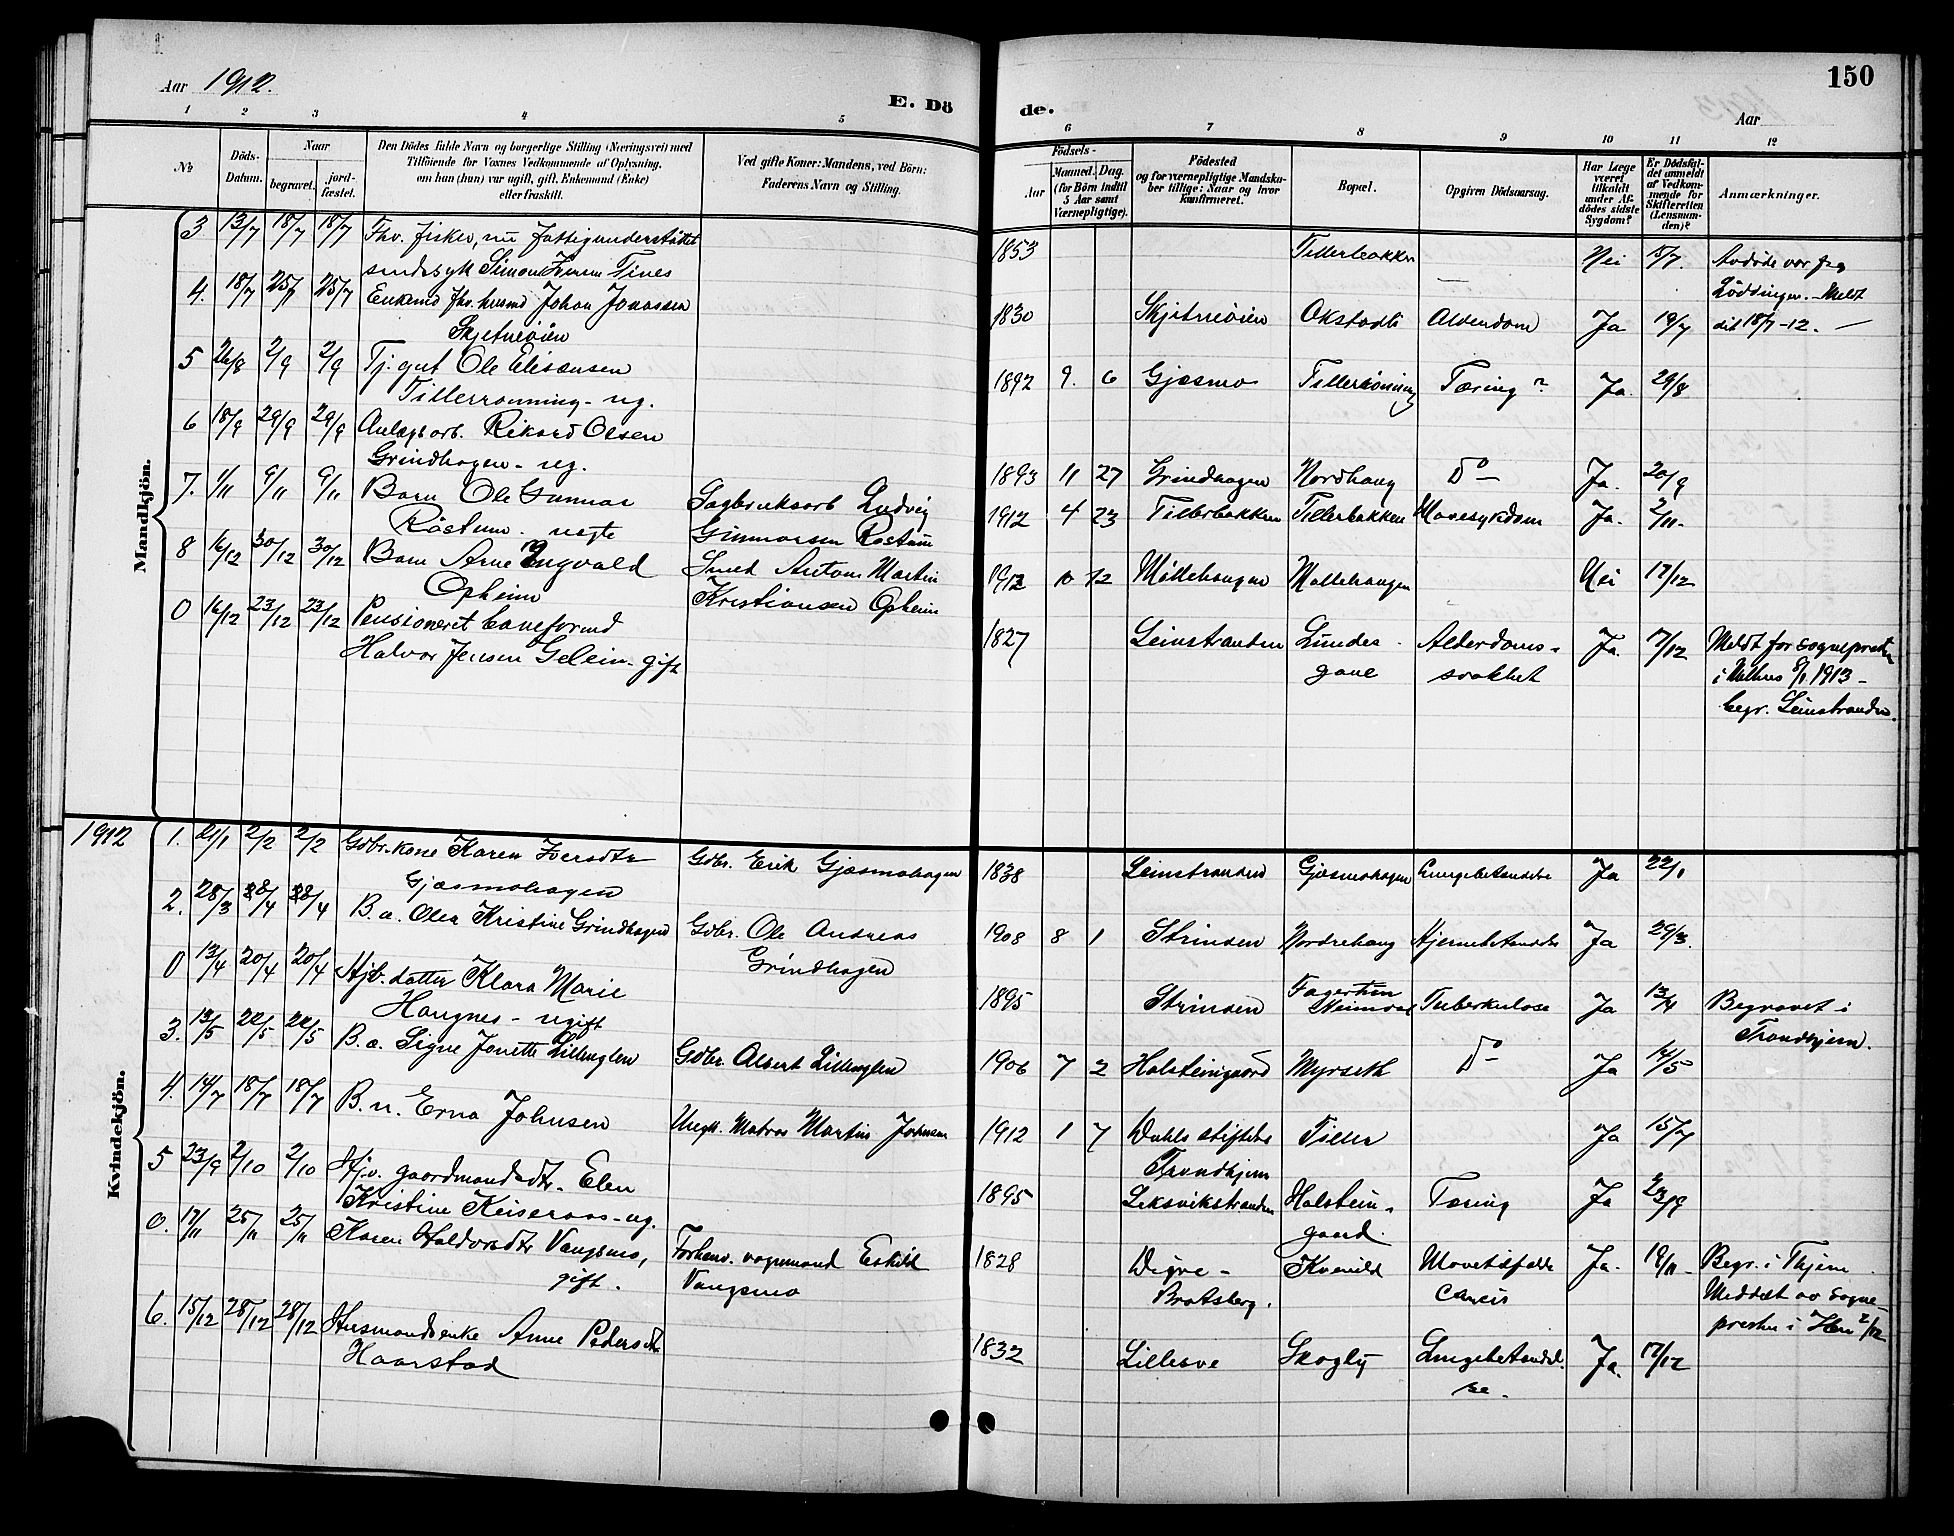 Aar 1912.
E. Dö
de.
Aar
150
1 2 3 4 5
6 7 8 9 10 11 12
No
Döds-
Datum.
Naar
begravet.
jord-
fæstet.
Den Dödes fulde Navn og borgerlige Stilling (Næringsvei) med
Tilföiende for Voxnes Vedkommende af Oplysning,
om han (hun) var ugift, gift, Enkemand (Enke)
eller fraskilt.
Ved gifte Koner: Mandens, ved Börn:
Faderens Navn og Stilling.
Födsels-
Aar
Maaned. Dag.
(for Börn indtil
5 Aar samt
Værnepligtige).
Födested
og for værnepligtige Mandska-
ber tillige: Naar og hvor
konfirmeret.
Bopæl.
Opgiven Dödsaarsag.
Har Læge
været
tilkaldt
under Af-
dödes sidste
Sygdom?
Er Dödsfal-
det anmeldt
af Vedkom-
mende for
Skifteretten
(Lensman-
den)?
Anmærkninger.
Mandkjön.
3 13/7 18/7 18/7 Fhv. fisker, nu fattigunderstøttet
sindssyk Simon Tines
1853 Tillerbakken — Nei 15/7. Avdøde var fra
Løddingen. - Meldt
dit 18/7-12. —
4. 18/7 25/7 25/7 Enkemd fhv. husmd Johan Jonassen
Skjetneøien
1830 Skjetneøien Okstadli Alderdom Ja 19/7
5 26/8 2/9 2/9 Tj. gut Ole Elisæusen
Tillerrønning - ug.
1892 9. 6 Gjæsmo Tillerrønning Tæring? Ja. 29/8
6 18/9 29/9 29/9 Anlægsarb. Rikard Olsen
Grindhagen - ug.
1893 11 27 Grindhagen Nordhaug Do — Ja. 20/9
7. 1/11 9/11 9/11 Barn Ole Gunnar
Røstum. uegte
Sagbruksarb Ludvig
Gunnarsen Røstum
1912 4 23 Tillerbakken Tillerbakken Mavesykdom Ja. 2/11.
8 16/12 30/12 30/12 Barn Arne Ingvald
Opheim
Smed Anton Martin
Kristiansen Opheim
1912 10 12 Møllehaugen Møllehaugen Nei 17/12
0 16/12 23/12 23/12 Pensioneret baneformd
Halvor Jensen Gelein - gift
1827 Leinstranden Lundes-
gave
Alderdoms-
svakhet
Ja. 17/12 Meldt for sogneprsten
i 8/1 1913 -
begr. Leinstranden.
1912
Kvindekjön.
1. 21/1 2/2 2/2 Gdbr. kone Karen Iversdtr
Gjæsmohagen
Gdbr. Erik Gjæsmohagen
1838 Leinstranden Gjæsmohagen Lungebetændelse Ja 22/1
2. 28/3 20/4 20/4 B. a. Olea Kristine Grindhagen
Gdbr. Ole Andreas
Grindhagen
1908 8 1 Strinden Nordrehaug Hjernebetændelse Ja 29/3.
0 13/4 20/4 20/4 Hjv. datter Klara Marie
Haugnes - ugift
1895 Strinden Fagertun
Heimdal
Tuberkulose Ja 13/4 Begravet i
Trondhjem.
3. 13/5 22/5 22/5 B. a. Signe Jonette Lilleuglen
Gdbr. Albert Lilleuglen
1906 7 2 Holsteingaard Myrseth Do — Ja 14/5
4. 14/7 18/7 18/7 B. u. Erna Johnsen
Ungk. Matros Martin Johnsen
1912 1 7 Dahls stiftelse
Trondhjem
Tiller Ja 15/7
5 23/9 2/10 2/10 Hjv. gaardmandsdtr. Elen
Kristine Keiseraas - ug.
1895 Leksvikstranden Holstein-
gaard.
Tæring Ja 23/9
0. 17/11 25/11 25/11 Karen Haldorsdtr Vangsmo,
gift.
Forhenv. vognmand Eskild
Vangsmo
1828 Digre -
Bratsberg.
Kvenild Mavetilfælde
Cancer
Ja. 19/11 - Begr. i Thjem
Meddelt av sogne-
presten i 2/12
6. 15/12 28/12 28/12 Husmandsenke Anne Pedersdtr
Haarstad
1832 Lillesve Skogly Lungebetændel-
se.
Ja. 17/12